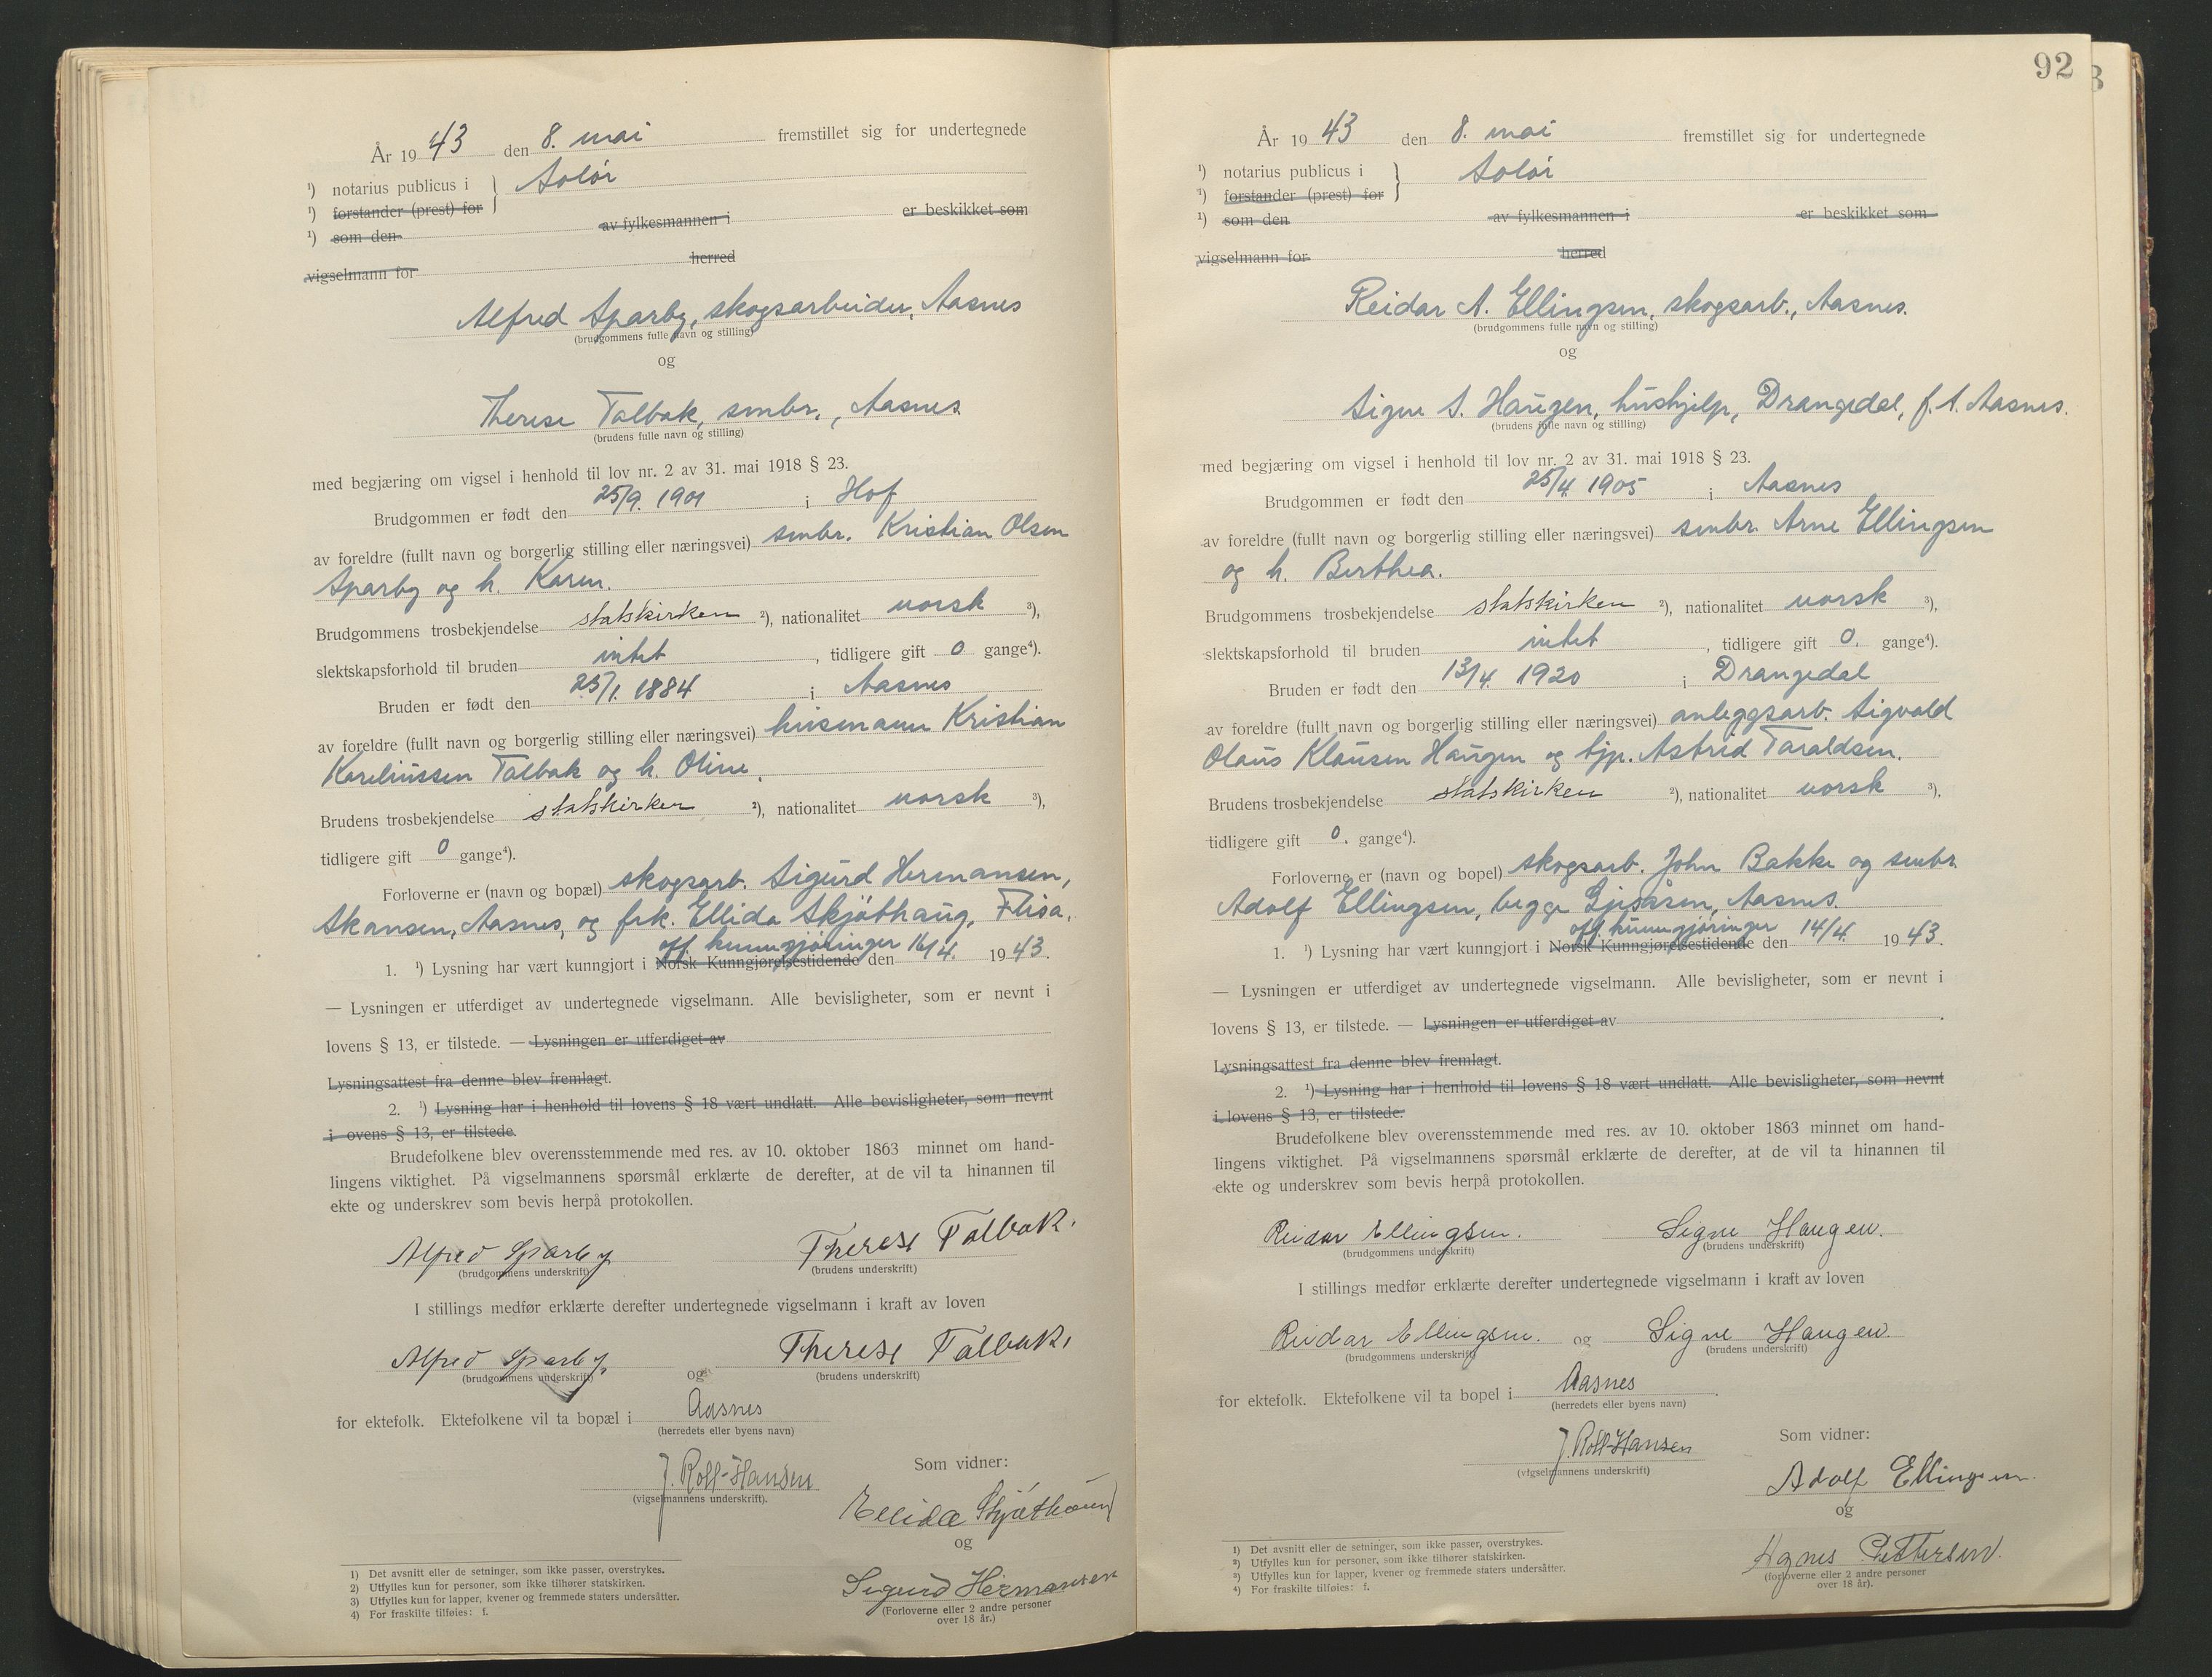 År 19 43 den 8. mai fremstillet sig for undertegnede
¹) notarius publicus i } Solør
¹) forstander (prest) for
¹) som den av fylkesmannen i er beskikket som
vigselmann for herred
Alfred Sparby, skogsarbeider, Aasnes
(brudgommens fulle navn og stilling)
og
Therese Talbak, smbr., Aasnes
(brudens fulle navn og stilling)
med begjæring om vigsel i henhold til lov nr. 2 av 31. mai 1918 § 23.
Brudgommen er født den 25/9. 1901 i Hof
av foreldre (fullt navn og borgerlig stilling eller næringsvei) smbr. Kristian Olsen
Sparby og h. Karen.
Brudgommens trosbekjendelse statskirken ²), nationalitet norsk ³),
slektskapsforhold til bruden intet, tidligere gift 0 gange⁴).
Bruden er født den 25/1. 1884 i Aasnes
av foreldre (fullt navn og borgerlig stilling eller næringsvei) husmann Kristian
Karelinssen Talbak og h. Oline.
Brudens trosbekjendelse statskirken ²), nationalitet norsk ³),
tidligere gift 0 gange⁴).
Forloverne er (navn og bopæl) skogsarb. Sigurd Hermansen,
Skansen, Aasnes, og frk. Ellida Skjøthaug, Flisa.
off. kunngjøringer
1. ¹) Lysning har vært kunngjort i Norsk Kunngjørelsestidende den 16/4. 19 43.
— Lysningen er utferdiget av undertegnede vigselmann. Alle bevisligheter, som er nevnt i
lovens § 13, er tilstede. — Lysningen er utferdiget av
Lysningsattest fra denne blev fremlagt.
2. ¹) Lysning har i henhold til lovens § 18 vært undlatt. Alle bevisligheter, som nevnt
i ovens § 13, er tilstede.
Brudefolkene blev overensstemmende med res. av 10. oktober 1863 minnet om hand-
lingens viktighet. På vigselmannens spørsmål erklærte de derefter, at de vil ta hinannen til
ekte og underskrev som bevis herpå protokollen.
Alfred Sparby Therese Talbak.
(brudgommens underskrift) (brudens underskrift)
I stillings medfør erklærte derefter undertegnede vigselmann i kraft av loven
Alfred Sparby. og Therese Talbak.
(brudgommens underskrift) (brudens underskrift)
for ektefolk. Ektefolkene vil ta bopæl i Aasnes
(herredets eller byens navn)
J. Roll-Hansen
(vigselmannens underskrift).
Som vidner:
Ellida Skjøthaug
og
Sigurd Hermansen
(Forloverne eller 2 andre personer
over 18 år.)
1) Det avsnitt eller de setninger, som ikke passer, overstrykes.
2) Utfylles kun for personer, som ikke tilhører statskirken.
3) Utfylles kun for lapper, kvener og fremmede staters undersåtter.
4) For fraskilte tilføies: f.
92
År 19 43 den 8. mai fremstillet sig for undertegnede
¹) notarius publicus i } Solør
¹) forstander (prest) for
¹) som den av fylkesmannen i er beskikket som
vigselmann for herred
Reidar A. Ellingsen, skogsarb., Aasnes.
(brudgommens fulle navn og stilling)
og
Signe S. Haugen, hushjelp, Drangedal, f. t. Aasnes.
(brudens fulle navn og stilling)
med begjæring om vigsel i henhold til lov nr. 2 av 31. mai 1918 § 23.
Brudgommen er født den 25/4 1905 i Aasnes
av foreldre (fullt navn og borgerlig stilling eller næringsvei) smbr. Arne Ellingsen
og h. Berthea.
Brudgommens trosbekjendelse statskirken ²), nationalitet norsk ³),
slektskapsforhold til bruden intet, tidligere gift 0. gange⁴).
Bruden er født den 13/4. 1920 i Drangedal
av foreldre (fullt navn og borgerlig stilling eller næringsvei) anleggsarb. Sigvald
Olaus Klausen Haugen og tjp. Astrid Taraldsen.
Brudens trosbekjendelse statskirken ²), nationalitet norsk ³),
tidligere gift 0. gange⁴).
Forloverne er (navn og bopel) skogsarb. John Bakke og smbr.
Adolf Ellingsen, begge Gjesåsen, Aasnes.
off. kunngjøringer
1. ¹) Lysning har vært kunngjort i Norsk Kunngjørelsestidende den 14/4. 19 43.
— Lysningen er utferdiget av undertegnede vigselmann. Alle bevisligheter, som er nevnt i
lovens § 13, er tilstede. — Lysningen er utferdiget av
Lysningsattest fra denne blev fremlagt.
2. ¹) Lysning har i henhold til lovens § 18 vært undlatt. Alle bevisligheter, som nevnt
i lovens § 13, er tilstede.
Brudefolkene blev overensstemmende med res. av 10. oktober 1863 minnet om hand-
lingens viktighet. På vigselmannens spørsmål erklærte de derefter, at de vil ta hinannen til
ekte og underskrev som bevis herpå protokollen.
Reidar Ellingsen. Signe Haugen.
(brudgommens underskrift) (brudens underskrift)
I stillings medfør erklærte derefter undertegnede vigselmann i kraft av loven
Reidar Ellingsen. og Signe Haugen.
(brudgommens underskrift) (brudens underskrift)
for ektefolk. Ektefolkene vil ta bopel i Aasnes.
(herredets eller byens navn)
J. Roll-Hansen
(vigselmannens underskrift)
Som vidner:
Adolf Ellingsen.
og
Agnes Pettersen.
(forloverne eller 2 andre personer
over 18 år).
1) Det avsnitt eller de setninger, som ikke passer, overstrykes.
²) Utfylles kun for personer, som ikke tilhører statskirken.
³) Utfylles kun for lapper, kvener og fremmede staters undersåtter.
⁴) For fraskilte tilføies: f.